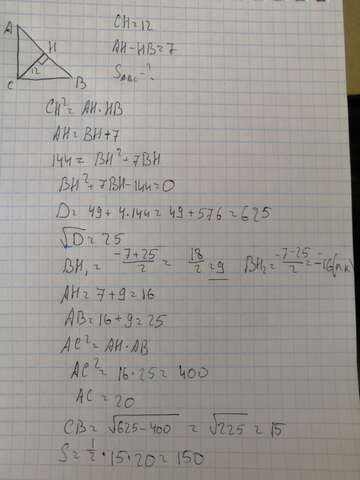 A
H
12
C
B
CH=12
AH-HB=7
S_ABC-?
CH²=AH·HB
AH=BH+7
144=BH²+7BH
BH²+7BH-144=0
D=49+4·144=49+576=625
√D=25
BH₁=(-7+25)/2=18/2=9 BH₂=(-7-25)/2=-16(п.к)
AH=7+9=16
AB=16+9=25
AC²=AH·AB
AC²=16·25=400
AC=20
CB=√(625-400)=√225=15
S=1/2·15·20=150